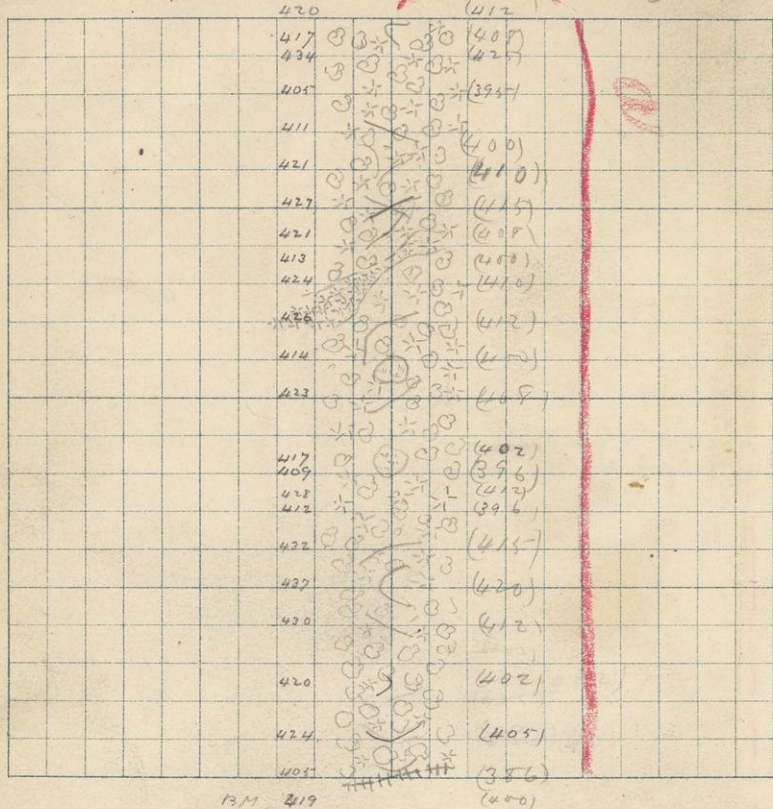 420 (412
417 (408)
434 (425)
405 (395)
411
(400)
421 (410)
427 (415)
421 (408)
413 (400)
424 (410)
426 (412)
414
423 (408)
417 (402)
409 (396)
428 (412)
412 (396
432 (415)
437 (420)
430 (412)
420 (402)
424 (405)
405 (386)
BM 419 (400)